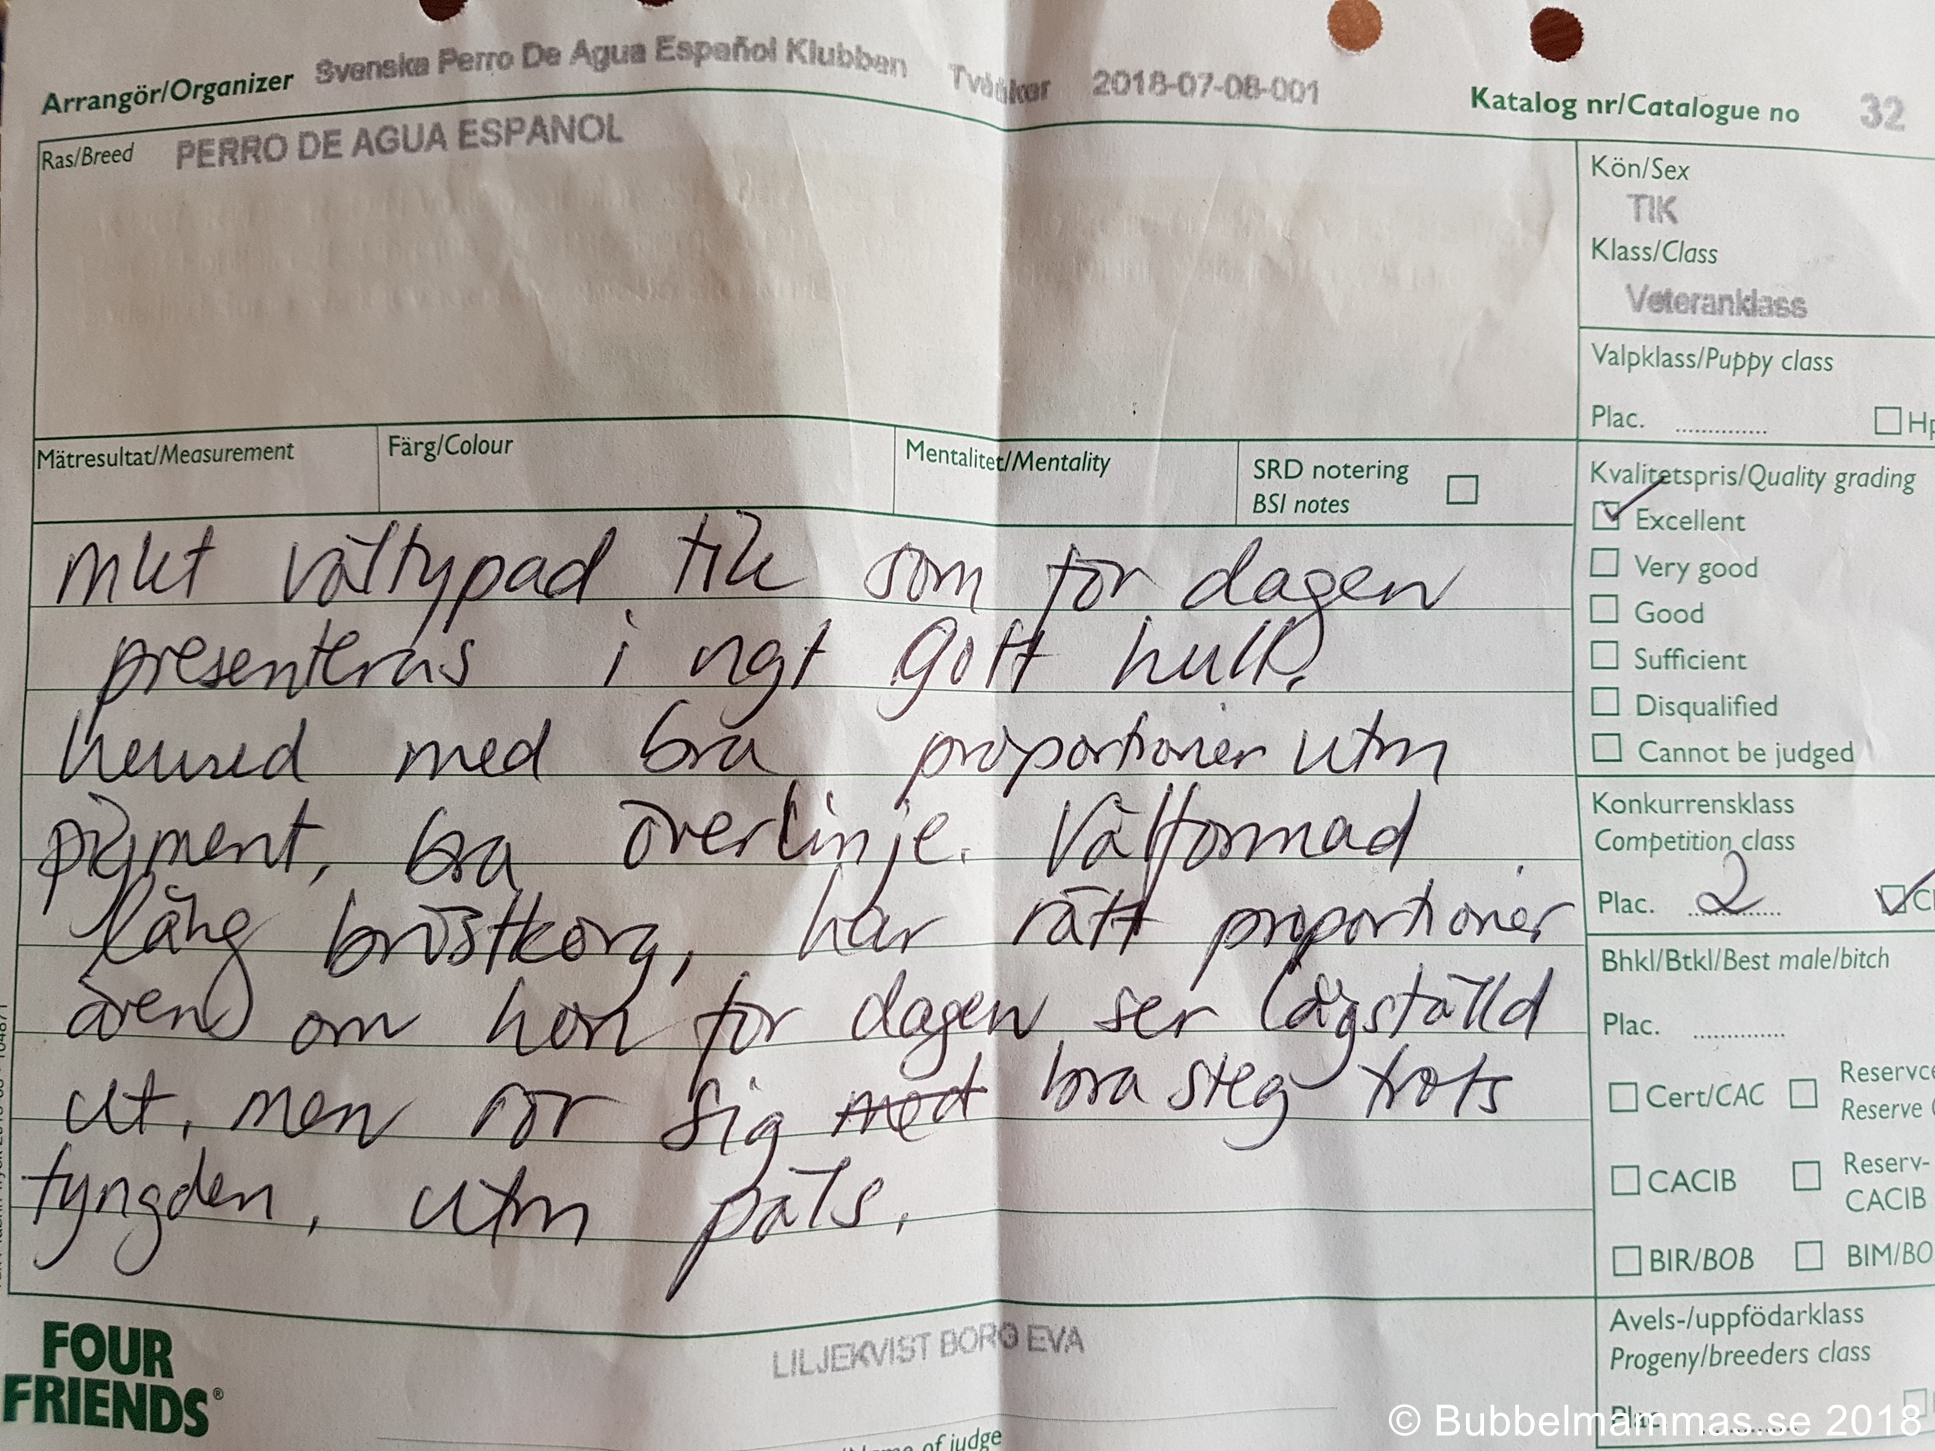 Arrangör/Organizer Svenska Perro De Agua Español Klubben Tvååker 2018-07-08-001 Katalog nr/Catalogue no 32
Ras/Breed PERRO DE AGUA ESPANOL
Kön/Sex
TIK
Klass/Class
Veteranklass
Valpklass/Puppy class
Plac. ............... Hp
Mätresultat/Measurement Färg/Colour Mentalitet/Mentality SRD notering
BSI notes
Kvalitetspris/Quality grading
Excellent
Very good
Good
Sufficient
Disqualified
Cannot be judged
mkt vältypad tik som för dagen
presenteras i ngt gott hull.
huvud med bra proportioner utm
pigment, bra överlinje. Välformad
lång bröstkorg, har rätt proportioner
även om hon för dagen ser lågställd
ut, men rör sig med bra steg trots
tyngden, utm päls.
Konkurrensklass
Competition class
Plac. 2
Bhkl/Btkl/Best male/bitch
Plac. ...............
Cert/CAC Reservce
Reserve
CACIB Reserv-
CACIB
BIR/BOB BIM/BO
Avels-/uppfödarklass
Progeny/breeders class
Plac.
FOUR
FRIENDS®
LILJEKVIST BORG EVA
of judge
© Bubbelmammas.se 2018